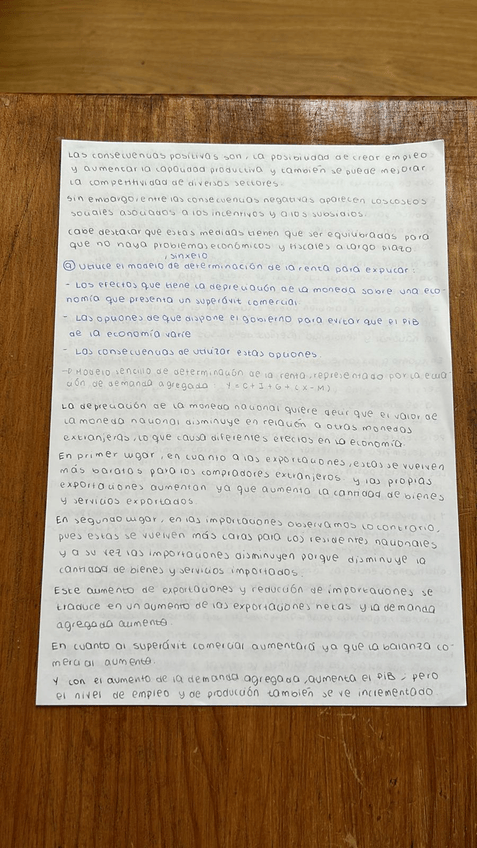 Las consecuencias positivas son, la posibilidad de crear empleo
y aumentar la capacidad productiva y también se puede mejorar
la competitividad de diversos sectores.
Sin embargo, entre las consecuencias negativas aparecen los costos
sociales asociados a los incentivos y a los subsidios.
Cabe destacar que estas medidas tienen que ser equilibradas para
que no haya problemas económicos y fiscales a largo plazo.
, sin x e i o
② Utilice el modelo de determinación de la renta para explicar:
- Los efectos que tiene la depreciación de la moneda sobre una eco-
nomía que presenta un superávit comercial
- Las opciones de que dispone el gobierno para evitar que el PIB
de la economía varíe
- Las consecuencias de utilizar estas opciones.
→ Modelo sencillo de determinación de la renta, representado por la ecua-
ción de demanda agregada Y = C + I + G + (X - M)
La depreciación de la moneda nacional quiere decir que el valor de
la moneda nacional disminuye en relación a otras monedas
extranjeras, lo que causa diferentes efectos en la economía.
En primer lugar, en cuanto a las exportaciones, estas se vuelven
más baratas para los compradores extranjeros y las propias
exportaciones aumentan ya que aumenta la cantidad de bienes
y servicios exportados.
En segundo lugar, en las importaciones observamos lo contrario,
pues estas se vuelven más caras para los residentes nacionales
y a su vez las importaciones disminuyen porque disminuye la
cantidad de bienes y servicios importados.
Este aumento de exportaciones y reducción de importaciones se
traduce en un aumento de las exportaciones netas y la demanda
agregada aumenta.
En cuanto al superávit comercial aumentará ya que la balanza co-
mercial aumenta.
Y con el aumento de la demanda agregada, aumenta el PIB, pero
el nivel de empleo y de producción también se ve incrementado